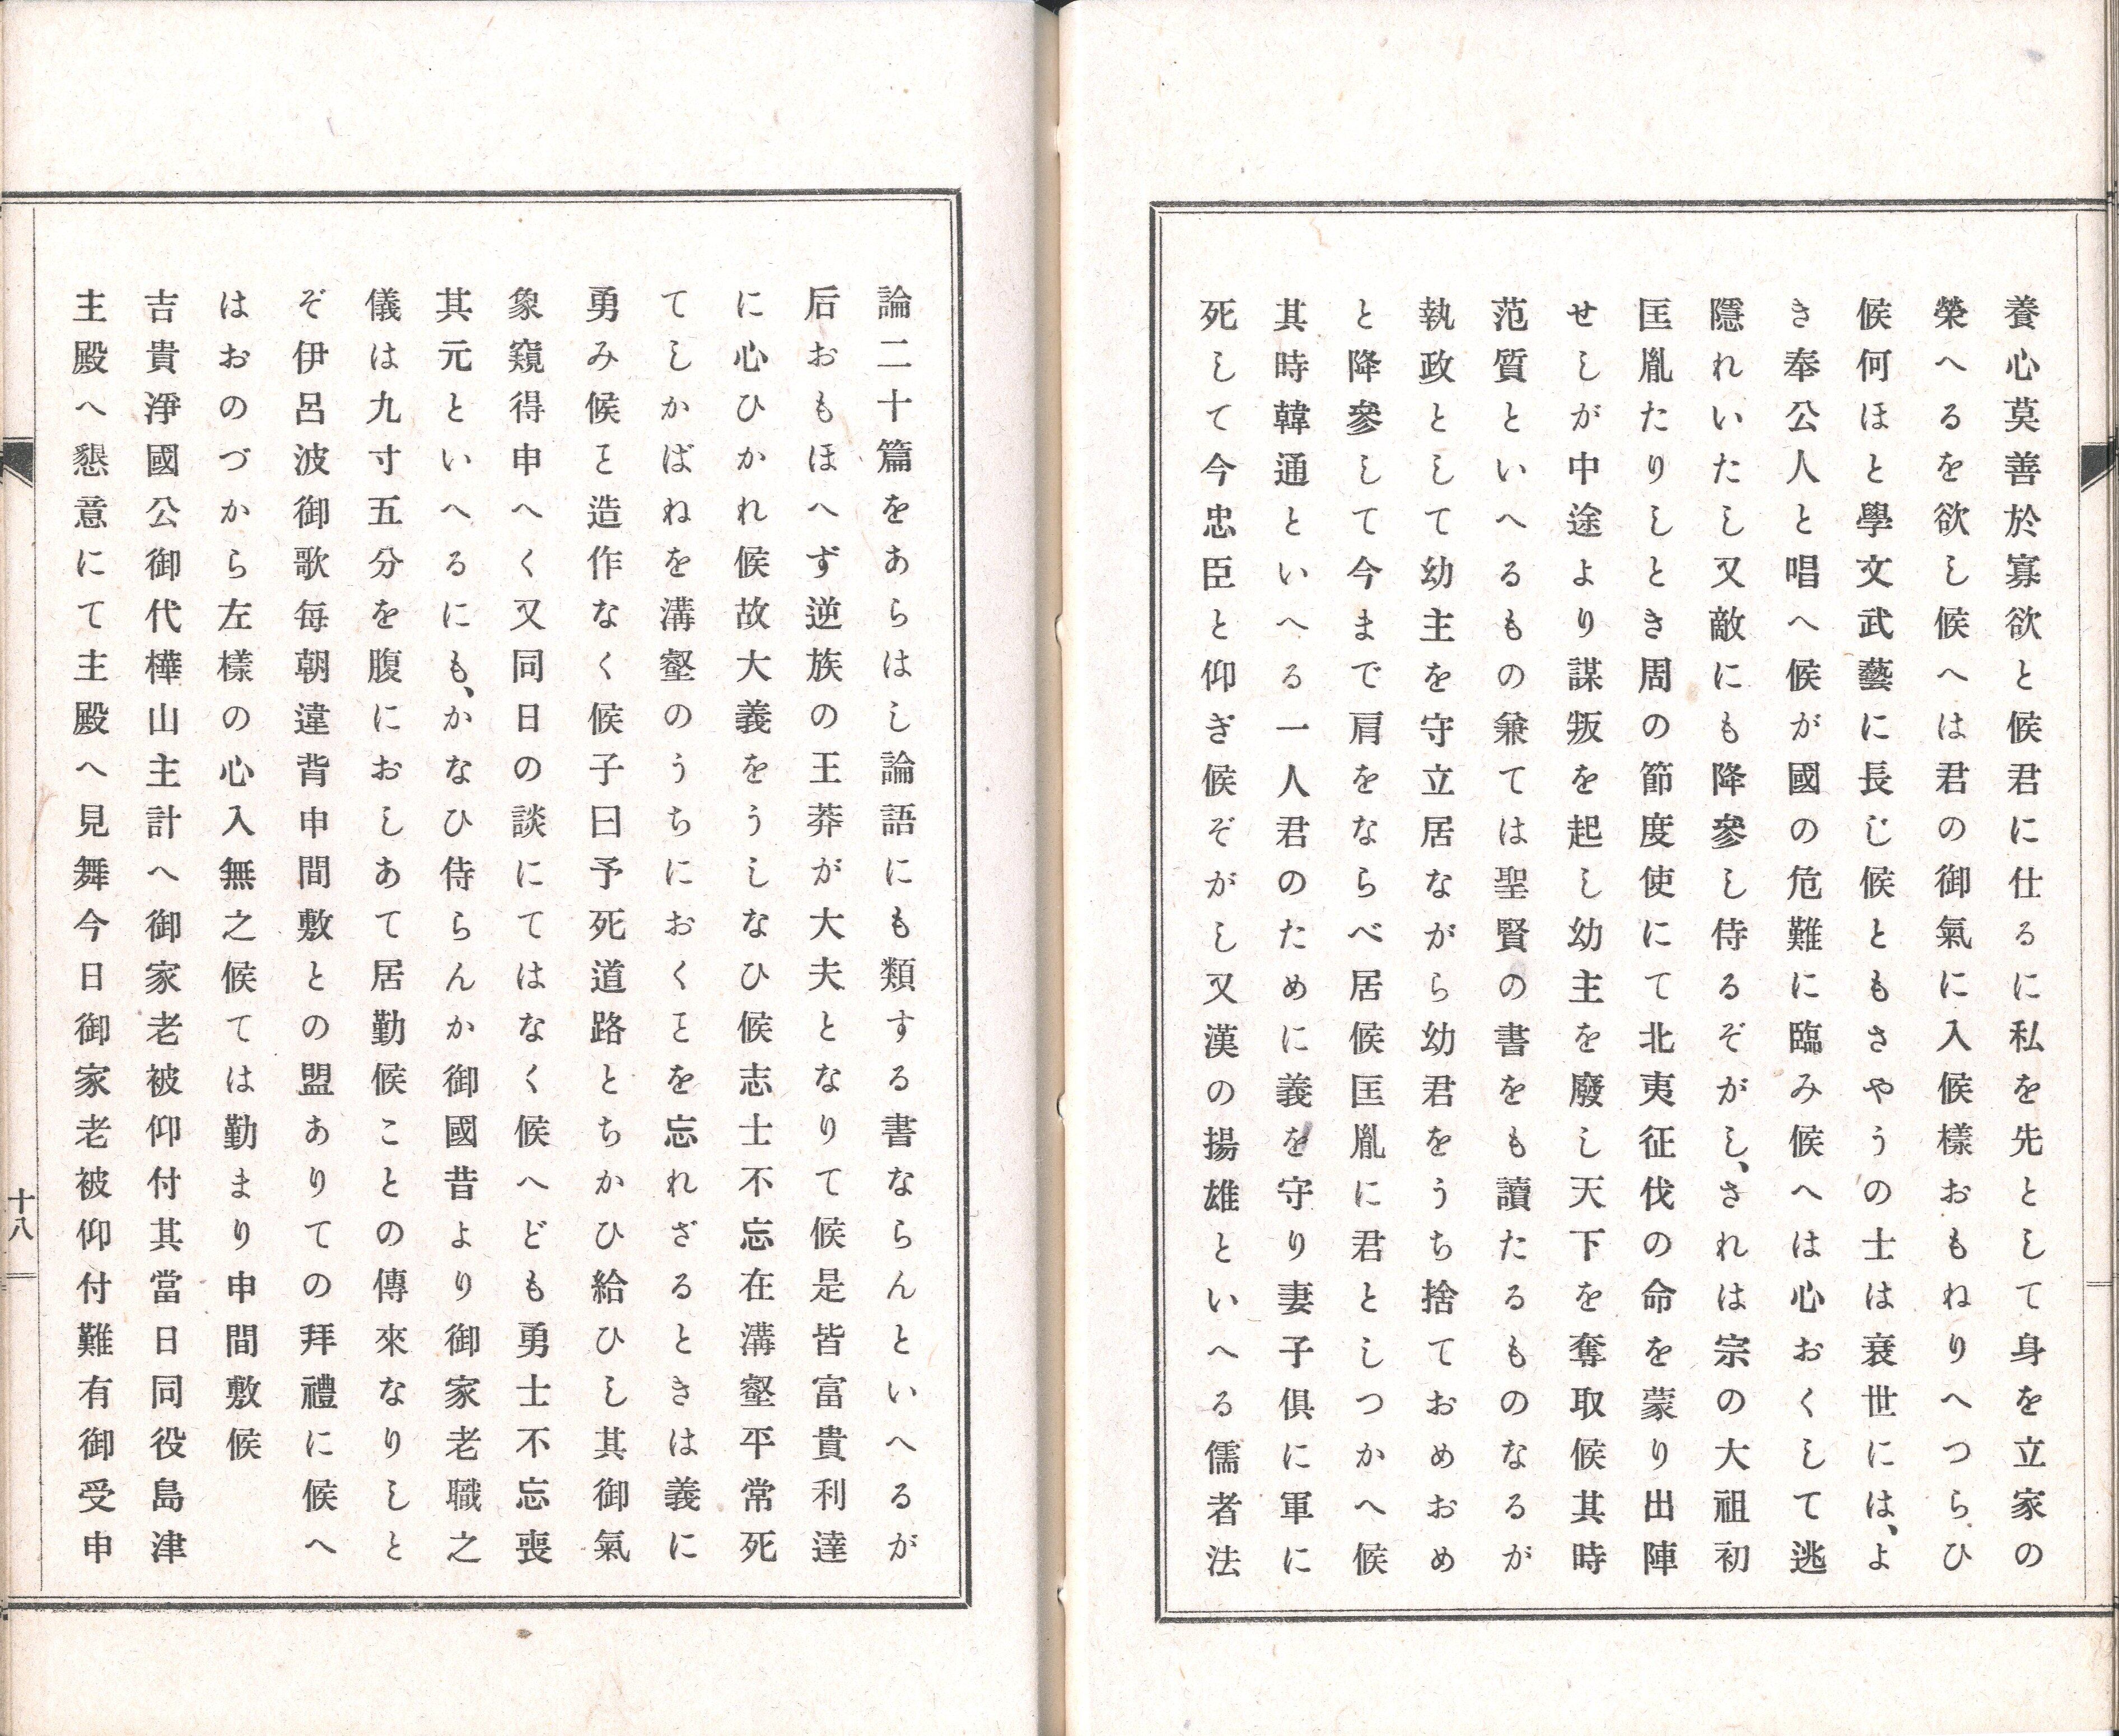 養心莫善於寡欲と候君に仕るに私を先として身を立家の
榮へるを欲し候へは君の御氣に入候樣おもねりへつらひ
候何ほと學文武藝に長じ候ともさやうの士は衰世には、よ
き奉公人と唱へ候が國の危難に臨み候へは心おくして逃
隱れいたし又敵にも降參し侍るぞがし、されは宗の大祖初
匡胤たりしとき周の節度使にて北夷征伐の命を蒙り出陣
せしが中途より謀叛を起し幼主を廢し天下を奪取候其時
范質といへるもの兼ては聖賢の書をも讀たるものなるが
執政として幼主を守立居ながら幼君をうち捨ておめおめ
と降參して今まで肩をならべ居候匡胤に君としつかへ候
其時韓通といへる一人君のために義を守り妻子俱に軍に
死して今忠臣と仰ぎ候ぞがし又漢の揚雄といへる儒者法
論二十篇をあらはし論語にも類する書ならんといへるが
后おもほへず逆族の王莽が大夫となりて候是皆富貴利達
に心ひかれ候故大義をうしなひ候志士不忘在溝壑平常死
てしかばねを溝壑のうちにおくとを忘れざるときは義に
勇み候と造作なく候子曰予死道路とちかひ給ひし其御氣
象窺得申へく又同日の談にてはなく候へども勇士不忘喪
其元といへるにも、かなひ侍らんか御國昔より御家老職之
儀は九寸五分を腹におしあて居勤候ことの傳來なりしと
ぞ伊呂波御歌每朝違背申間敷との盟ありての拜禮に候へ
はおのづから左樣の心入無之候ては勤まり申間敷候
吉貴淨國公御代樺山主計へ御家老被仰付其當日同役島津
主殿へ懇意にて主殿へ見舞今日御家老被仰付難有御受申
十八